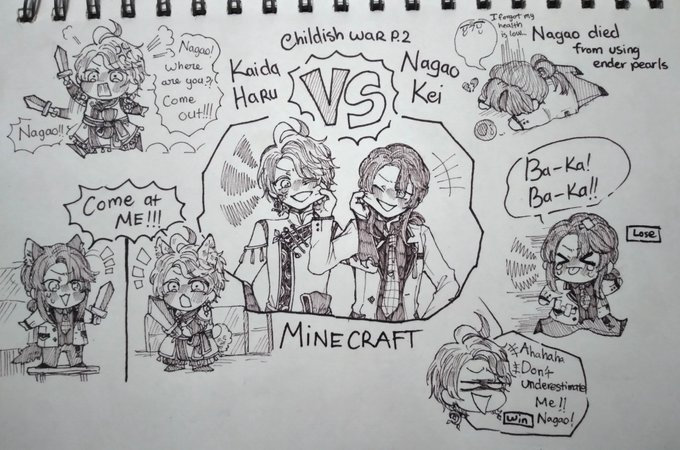 Childish War P.2
Kaida
Haru
VS
Nagao
Kei
MINECRAFT
Nagao!
Where
are you?
Come
out!!!
Nagao!!
I forgot my
health
is low..
Nagao died
from using
ender pearls
Come at
ME!!!
Ba-Ka!
Ba-Ka!!
Lose
Ahahaha
Don't
underestimate
Me!!
Nagao!
Win